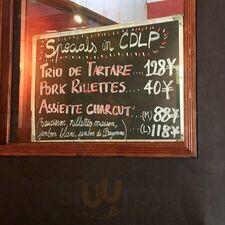 Specials in CDLP
TRIO DE TARTARE... 128¥
PORK RILLETTES... 40¥
ASSIETTE CHARCUT' (M) 88¥
(Saucisson, rillettes maison, (L) 118¥
jambon blanc, jambon de Bayonne)